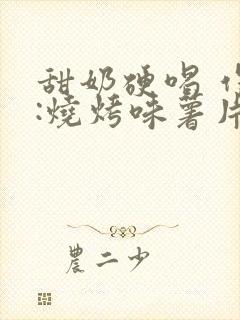 甜奶硬唱
:燒烤味薯片
農二少